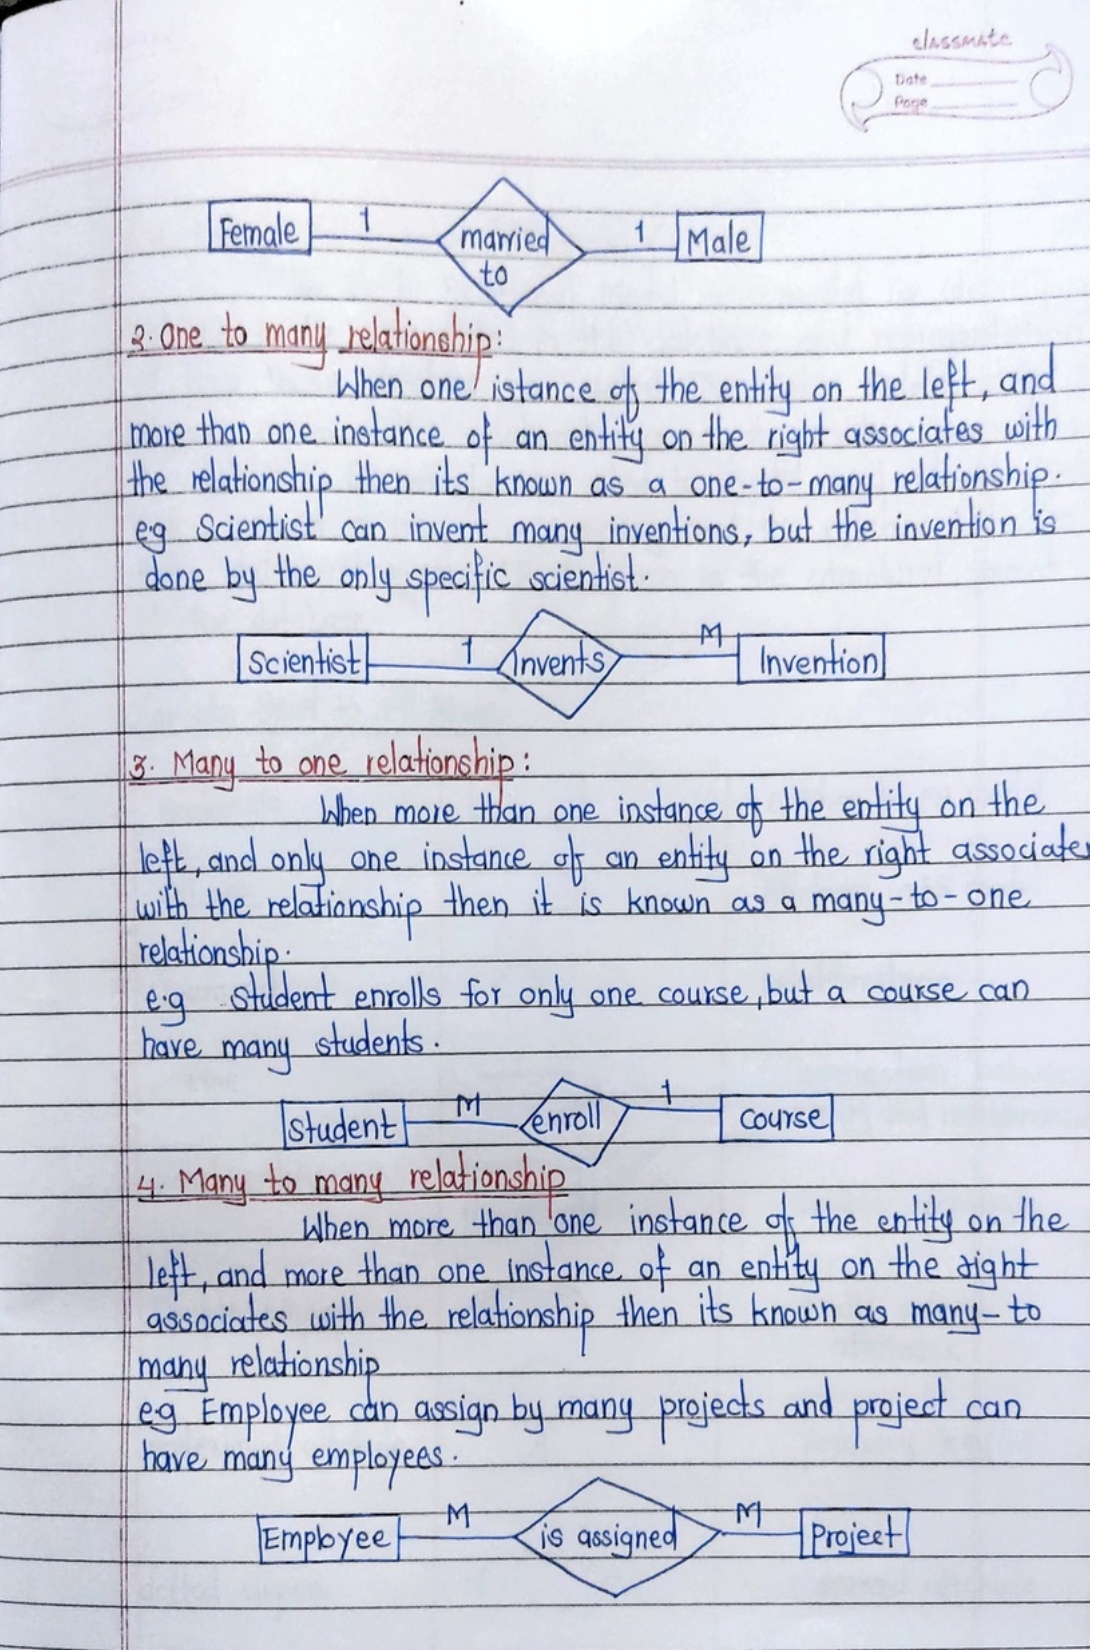 classmate
Date
Page
Female 1 married to 1 Male
2. One to many relationship:
When one istance of the entity on the left, and
more than one instance of an entity on the right associates with
the relationship then its known as a one-to-many relationship.
e.g Scientist can invent many inventions, but the invention is
done by the only specific scientist.
Scientist 1 Invents M Invention
3. Many to one relationship:
When more than one instance of the entity on the
left, and only one instance of an entity on the right associates
with the relationship then it is known as a many-to-one
relationship.
e.g Student enrolls for only one course, but a course can
have many students.
Student M enroll 1 course
4. Many to many relationship
When more than one instance of the entity on the
left, and more than one instance of an entity on the right
associates with the relationship then its known as many-to
many relationship
e.g Employee can assign by many projects and project can
have many employees.
Employee M is assigned M Project